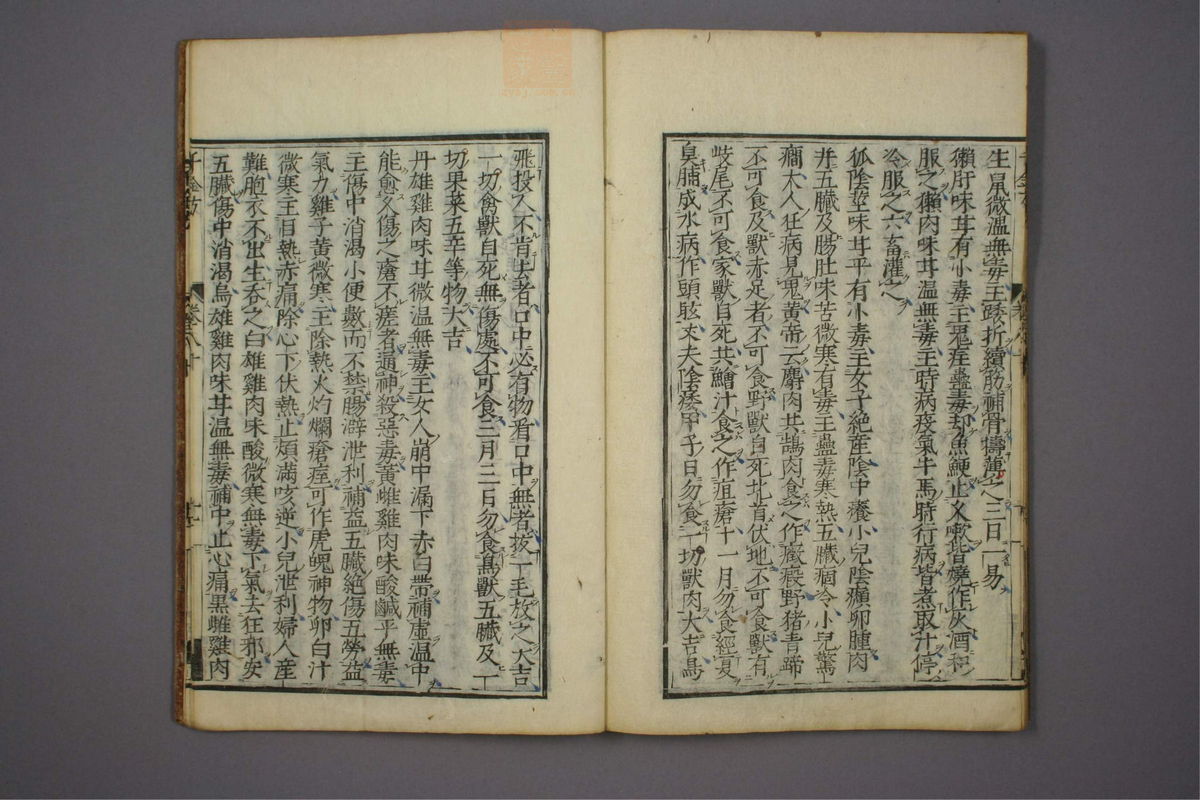 生鼠微溫無毒主踒折續筋補骨擣薄之三日一易
獺肝味甘有小毒主鬼疰蠱毒却魚鯁止久嗽皆燒作灰酒和
服之獺肉味甘溫無毒主時病疫氣牛馬時行病皆煮取汁停
冷服之六畜灌之
狐陰莖味甘平有小毒主女子絕產陰中癢小兒陰㿗卵腫肉
并五臟及腸肚味苦微寒有毒主蠱毒寒熱五臟痼冷小兒驚
癇大人狂病見鬼黃帝云麝肉共鵠肉食之作癥瘕野猪青蹄
不可食及獸赤足者不可食野獸自死北首伏地不可食獸有
歧尾不可食家獸自死共鱠汁食之作疽瘡十一月勿食經夏
臭脯成水病作頭眩丈夫陰痿甲子日勿食一切獸肉大吉鳥
飛投人不肯去者口中必有物看口中無者拔一毛放之大吉
一切禽獸自死無傷處不可食三月三日勿食鳥獸五臟及一
切果菜五辛等物大吉
丹雄雞肉味甘微溫無毒主女人崩中漏下赤白帶補虛溫中
能愈久傷之瘡不瘥者通神殺惡毒黃雌雞肉味酸鹹平無毒
主傷中消渴小便數而不禁腸澼泄利補益五臟絕傷五勞益
氣力雞子黃微寒主除熱火灼爛瘡痓可作虎魄神物卵白汁
微寒主目熱赤痛除心下伏熱止煩滿咳逆小兒泄利婦人產
難胞衣不出生吞之白雄雞肉味酸微寒無毒下氣去狂邪安
五臟傷中消渴烏雄雞肉味甘溫無毒補中止心痛黑雌雞肉